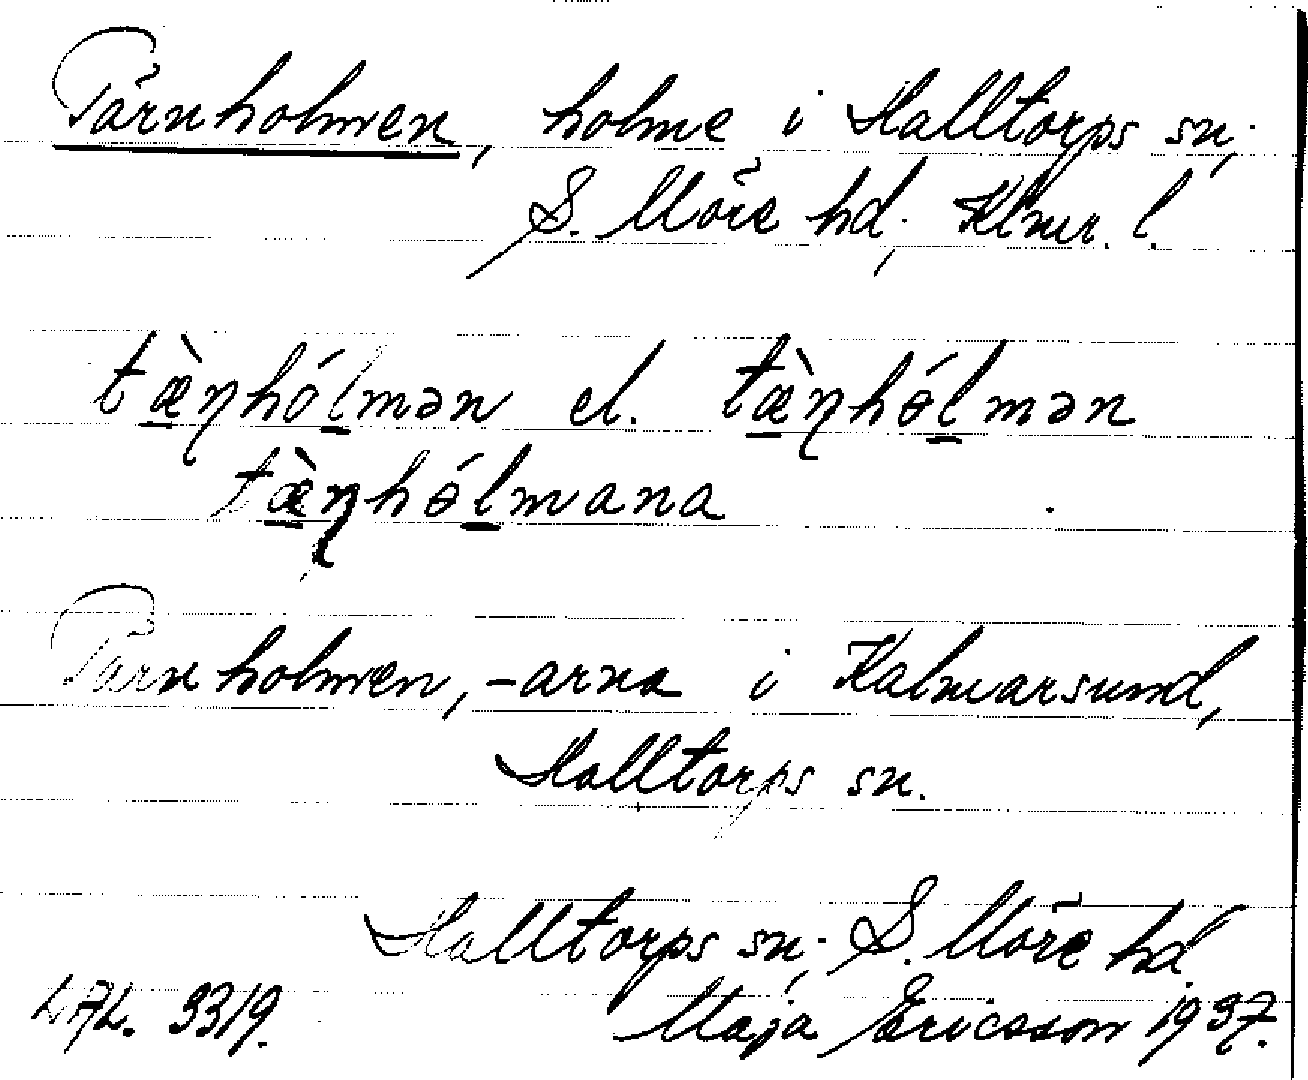 Tärnholmen, holme i Halltorps sn,
S. Möre hd, Klmr. l.
tæ̀ɳhólmən el. tæ̀ɳhólmən
tæ̀ɳhólmana
Tärnholmen, -arna i Kalmarsund,
Halltorps sn.
Halltorps sn, S. Möre hd
LAL. 3319. Maja Ericsson 1937.